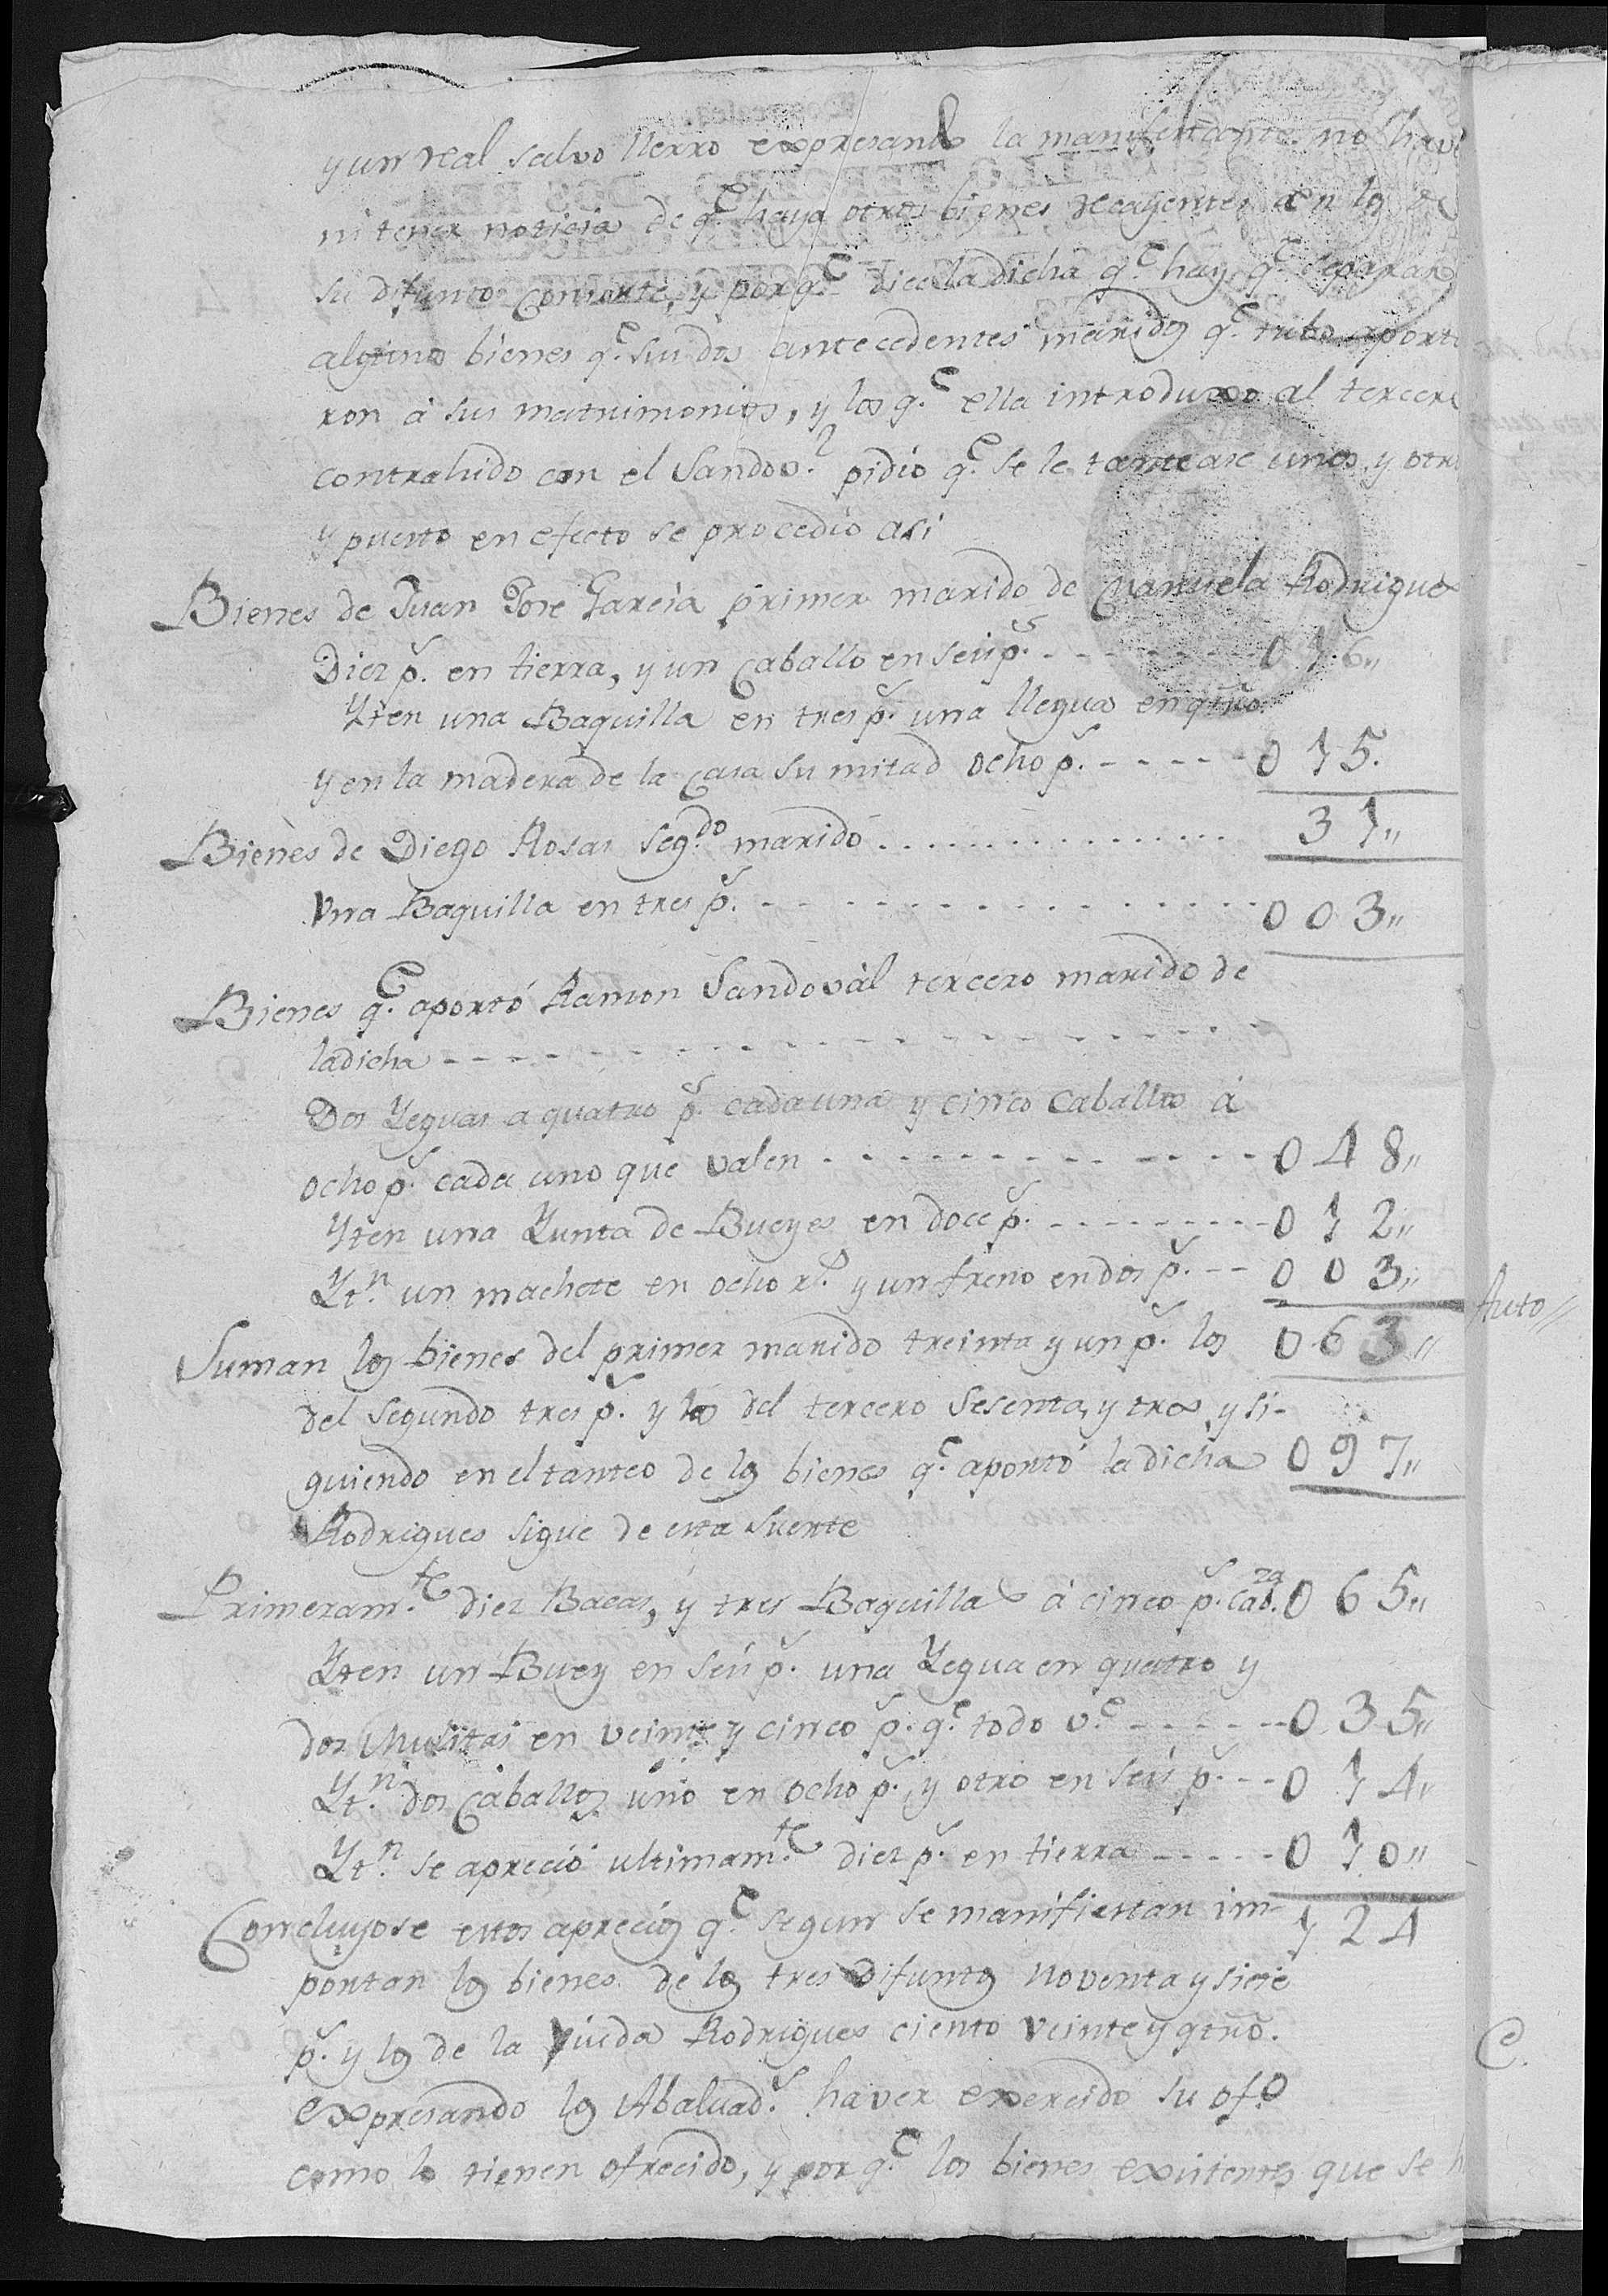 y un real salvo llerro expresando la manifestante no hav
ni tener noticia de q.e haya otros bienes recayentes en los de
su difunto consorte, y por q.e dice la dicha q.e hay q.e separar
algunos bienes q.e sus dos antecedentes maridos q.e tubo aporta
ron á sus matrimonios, y los q.e ella introduxo al tercero
contrahido con el Sandov.l pidió q.e se le tantease unos y otro
y puesto en efecto se procedió asi
Bienes de Juan Jose Garcia primer marido de Manuela Rodrigues
Diez p.s en tierra, y un Caballo en seis p.s - - - - 016,,
Yten una Baquilla en tres p.s una llegua en qtro
y en la madera de la casa su mitad ocho p.s - - - - 015.
31,,
Bienes de Diego Rosas seg.do marido . . . . . . . .
Una Baquilla en tres p.s - - - - - - - - 003,,
Bienes q.e aportó Ramon Sandovàl tercero marido de
la dicha - - - - - - - - - -
Dos Yeguas a quatro p.s cada una y cinco Caballos á
ocho p.s cada uno que valen - - - - - - - - 048,,
Yten una Yunta de Bueyes en doce p.s - - - - - - 012,,
Yt.n un machete en ocho r.s y un freno en dos p.s - - 003,,
Suman los bienes del primer marido treinta y un p.s los 063,,
del segundo tres p.s y los del tercero sesenta y tres y si-
guiendo en el tanteo de los bienes q.e aportó la dicha 097,,
Rodrigues sigue de esta suerte
Primeram.te diez Bacas, y tres Baquillas á cinco p.s cab.za 065,,
Yten un Buey en seis p.s una Yegua en quatro y
dos Mulitas en veinte y cinco p.s q.e todo v.e - - - - 035,,
Yt.n dos Caballos uno en ocho p.s y otro en seis p.s - - 014,,
Yt.n se apreció ultimam.te diez p.s en tierra - - - - 010,,
Concluyose estos aprecios q.e segun se manifiestan im- 124
portan los bienes de los tres difuntos noventa y siete
p.s y los de la viuda Rodrigues ciento veinte y qtro.
expresando los Abaluad.s haver exercido su of.o
como lo tienen ofrecido, y por q.e los bienes existentes que se h
Auto